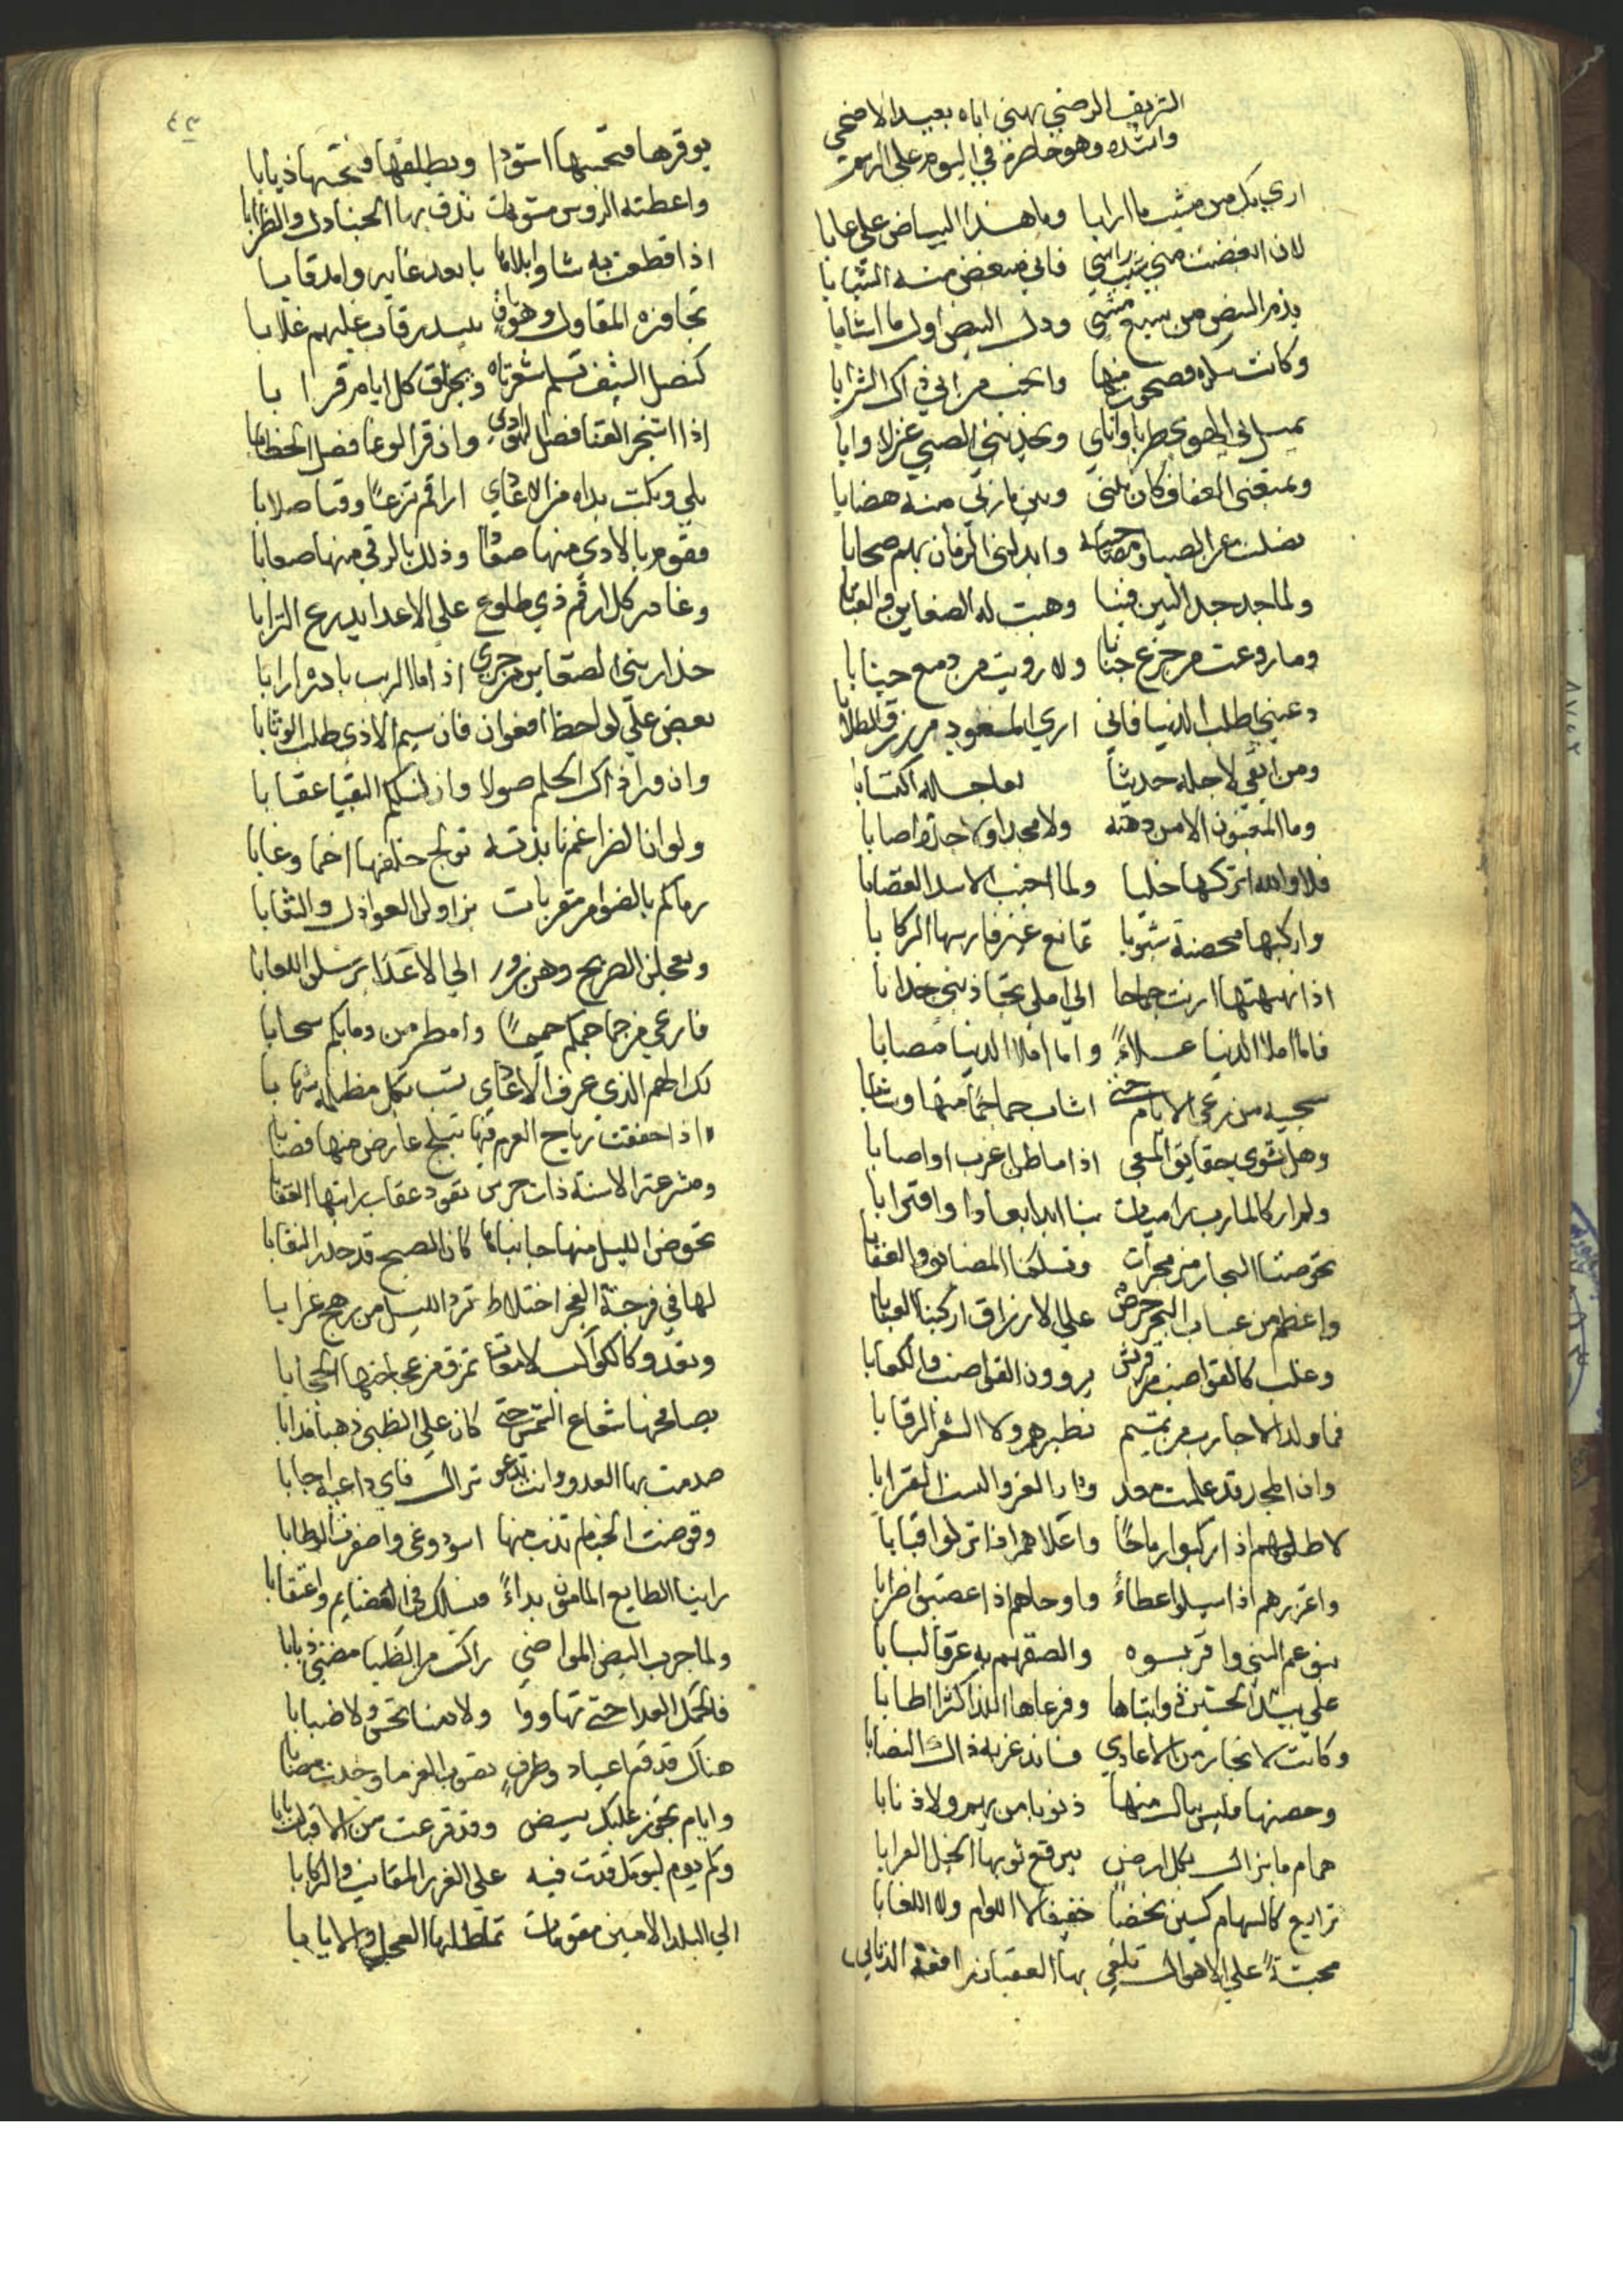 الشريف الرضي يهني اباه بعيد الاضحى
وانشده وهو حاضر في اليوم على الرسم
ارى بك من مشيب ما ارابا وما هذا البياض علي عابا
لان ابغضت مني شيب راسي فاني مبغض منه الشبابا
يذم البيض من جزع مشيبي ودل البيض اول ما اشابا
وكانت سكرة فصحوت منها وانجب من ابى ذاك الشرابا
يميل بي الهوى طربا واناي ويجذبني الصبى غزلا وابا
ويمنعني العفاف كان بيني وبين ماربي منه هضابا
نصلت عن الصبا ومصاحبيه وابدلني الزمان بهم صحابا
ولما جد جد البين فينا وهبت له الضغاين والعتابا
وما روعت من جزع جنانا ولا رويت من دمع جنابا
دعيني اطلب الدنيا فاني ارى المسعود من رزق الطلابا
ومن ابقى لاجله حديثا لعاجله اكتسابا
وما المغبون الا من دهته ولا مجدا ولا جدة اصابا
فلا والله اتركها خليا ولما اجنب الاسد الغضابا
واركبها محصنة شبوبا تمانع غير فارسها الركابا
اذا نهنهتها ارنت جماحا الى املي تجاذبني جذابا
فاما املا الدنيا علاءً واما املا الدنيا مصابا
سجية من رعى الايام حتى اشاب جماجما منها وشابا
وهل تشوى حقايق المعي اذا ما ظن اغرب او اصابا
ولم ار كالمارب راميات بنا ابدا بعادا واقترابا
تخوضنا البحار مزمجرات وتسلكنا المضايق والعقابا
واعظم من عباب البحر حرص على الارزاق اركبنا العبابا
وغلب كالقواضب من قريش يروون القواضب والكعابا
فما ولد الاجارب من تميم نظيرهم ولا الشعر الرقابا
وان المجد قد علمت معد ودار العز والنسب القرابا
لاطولهم اذا ركبوا رماحًا واعلاهم اذا نزلوا قبابا
واغزرهم اذا سيلوا عطاءً واوحاهم اذا غضبوا ضرابا
بنو عم النبي واقربوه والصقهم به عرقا لبابا
على بيد الحسين ذوابتاها وفرعاها اللذا كثرا اطابا
وكانت لا تجار من الاعادي فانذ عزبه ذاك النصابا
وحصنها فليس ينال منها ذنوبا من يهم ولا ذنابا
همام ما يزال بكل ارض يبرقع ثوبها الخيل العرابا
ترايع كالسهام كسين نحضًا خفيفا لا اللوام ولا اللغابا
محبسةً على الاهوال تلقى بها العقبان رافعة الذنابى
٤٣
يوقرها فتحسبها اسودا ويطلقها فتحسبها ذيابا
واعطته الروس مسومات تدق بها الجنادل والظرابا
اذا قطعت به شاوا بلاها بابعد غايه وامد قابا
تجافزه المقاول وهو باق يبيد رقاب غلبهم غلابا
كنصل السيف تسلم شفرتاه ويخلق كل ايام قرابا
اذا اشتجر القنا فصل الهوادي وان قر الوغا فصل الخطابا
بلى وبلت يداه من الاعادي اراقم نزعًا وقنا صلابا
فقوم بالاذى منها صعادا وذلل بالرقى منها صعابا
وغادر كل ارقم ذي طلوع على الاعدا يدرع الترابا
حذار بني الضغاين من جرى اذا ما الريب بادره ارابا
يغض على لواحظ افعوان فان سيم الاذى طلب الوثابا
وان وراء ذاك الحلم صولا وان لتلكم البقيا عقابا
ولو ان الضراغم نابذته تولج خلفها اجما وغابا
رماكم بالضوامر مقربات يزاولن العواذل والنقابا
ويعجلن الصريح وهن زور الى الاعداء يرسلن اللعابا
فارعى من جماجمكم حميمًا وامطر من دمايكم سحابا
لك الهمم الذي عرف الاعادي يشب بكل مظلمة شهابا
اذا خفقت رياح العزم فيها تبلج عارض منها فصابا
ومشرعة الاسنة ذات جرس تقود عقاب رايتها العقابا
تخوض الليل منها جانباها كان الصبح قد حدر النقابا
لها في فرجة الفجر اختلاط ترد الليل من رهج غرابا
وتغدو كالكواكب لامعات تمزق من عجاجتها الحجابا
يصافحها شعاع الشمس حتى كان على الظبى ذهبا مذابا
صدمت بها العدو وانت تدعو نزال فاي داعية اجابا
وقوضت الخيام تذب منها اسود وغى واصفرت الوطابا
راينا الطايع المامون بداءً فسلك في العضايم واعتقابا
ولما جرب البيض المواضي راك من الظبا امضى ذبابا
فالحمل العدا حتى تهاووا ولا دمنا تخس ولا ضبابا
هناك قدوم اعياد وطرفٍ يصوب العز ما وجدت مصابا
وايام تجوز عليك بيض وقد قرعت من الاقبال بابا
وكم يوم ليومك قدت فيه على الغرر المقانب والركابا
الى البلد الامين مقومات تماطلها العجل والايابا